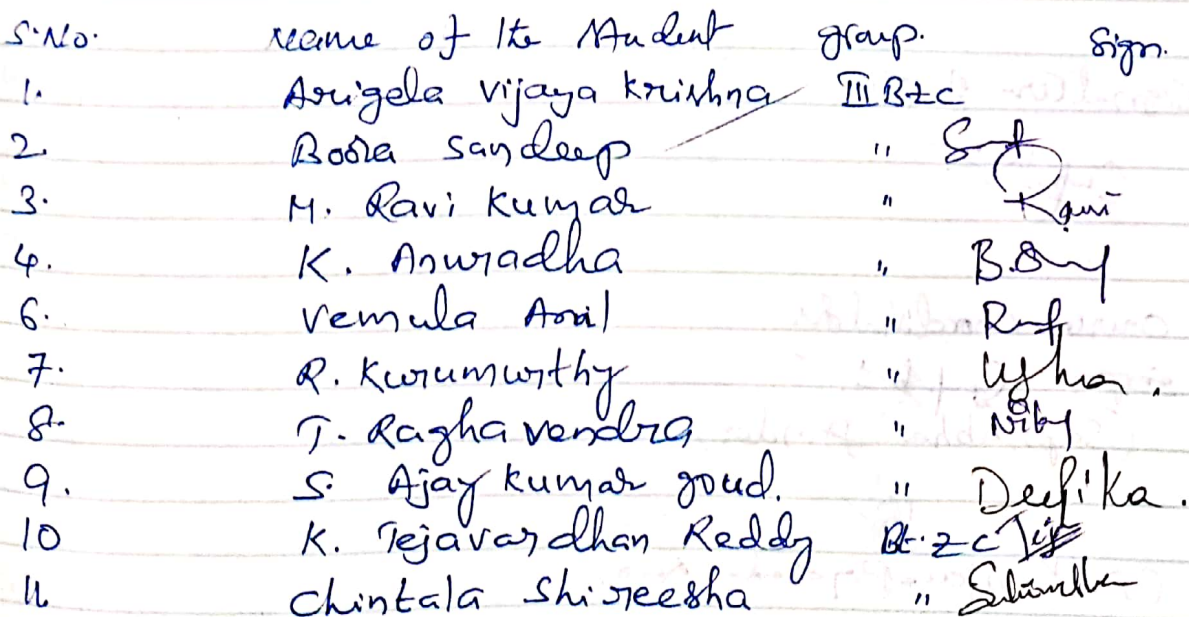 S.No. Name of the Student group. Sign.
1. Arigela vijaya krishna III BZC
2. Boora sandeep "
3. M. Ravi kumar " Ravi
4. K. Anuradha "
6. Vemula Anil "
7. R. Kurumurthy "
8. T. Raghavendra "
9. S. Ajay kumar goud. " Deepika.
10 K. Tejavardhan Reddy Bt.ZC
11 Chintala Shireesha "